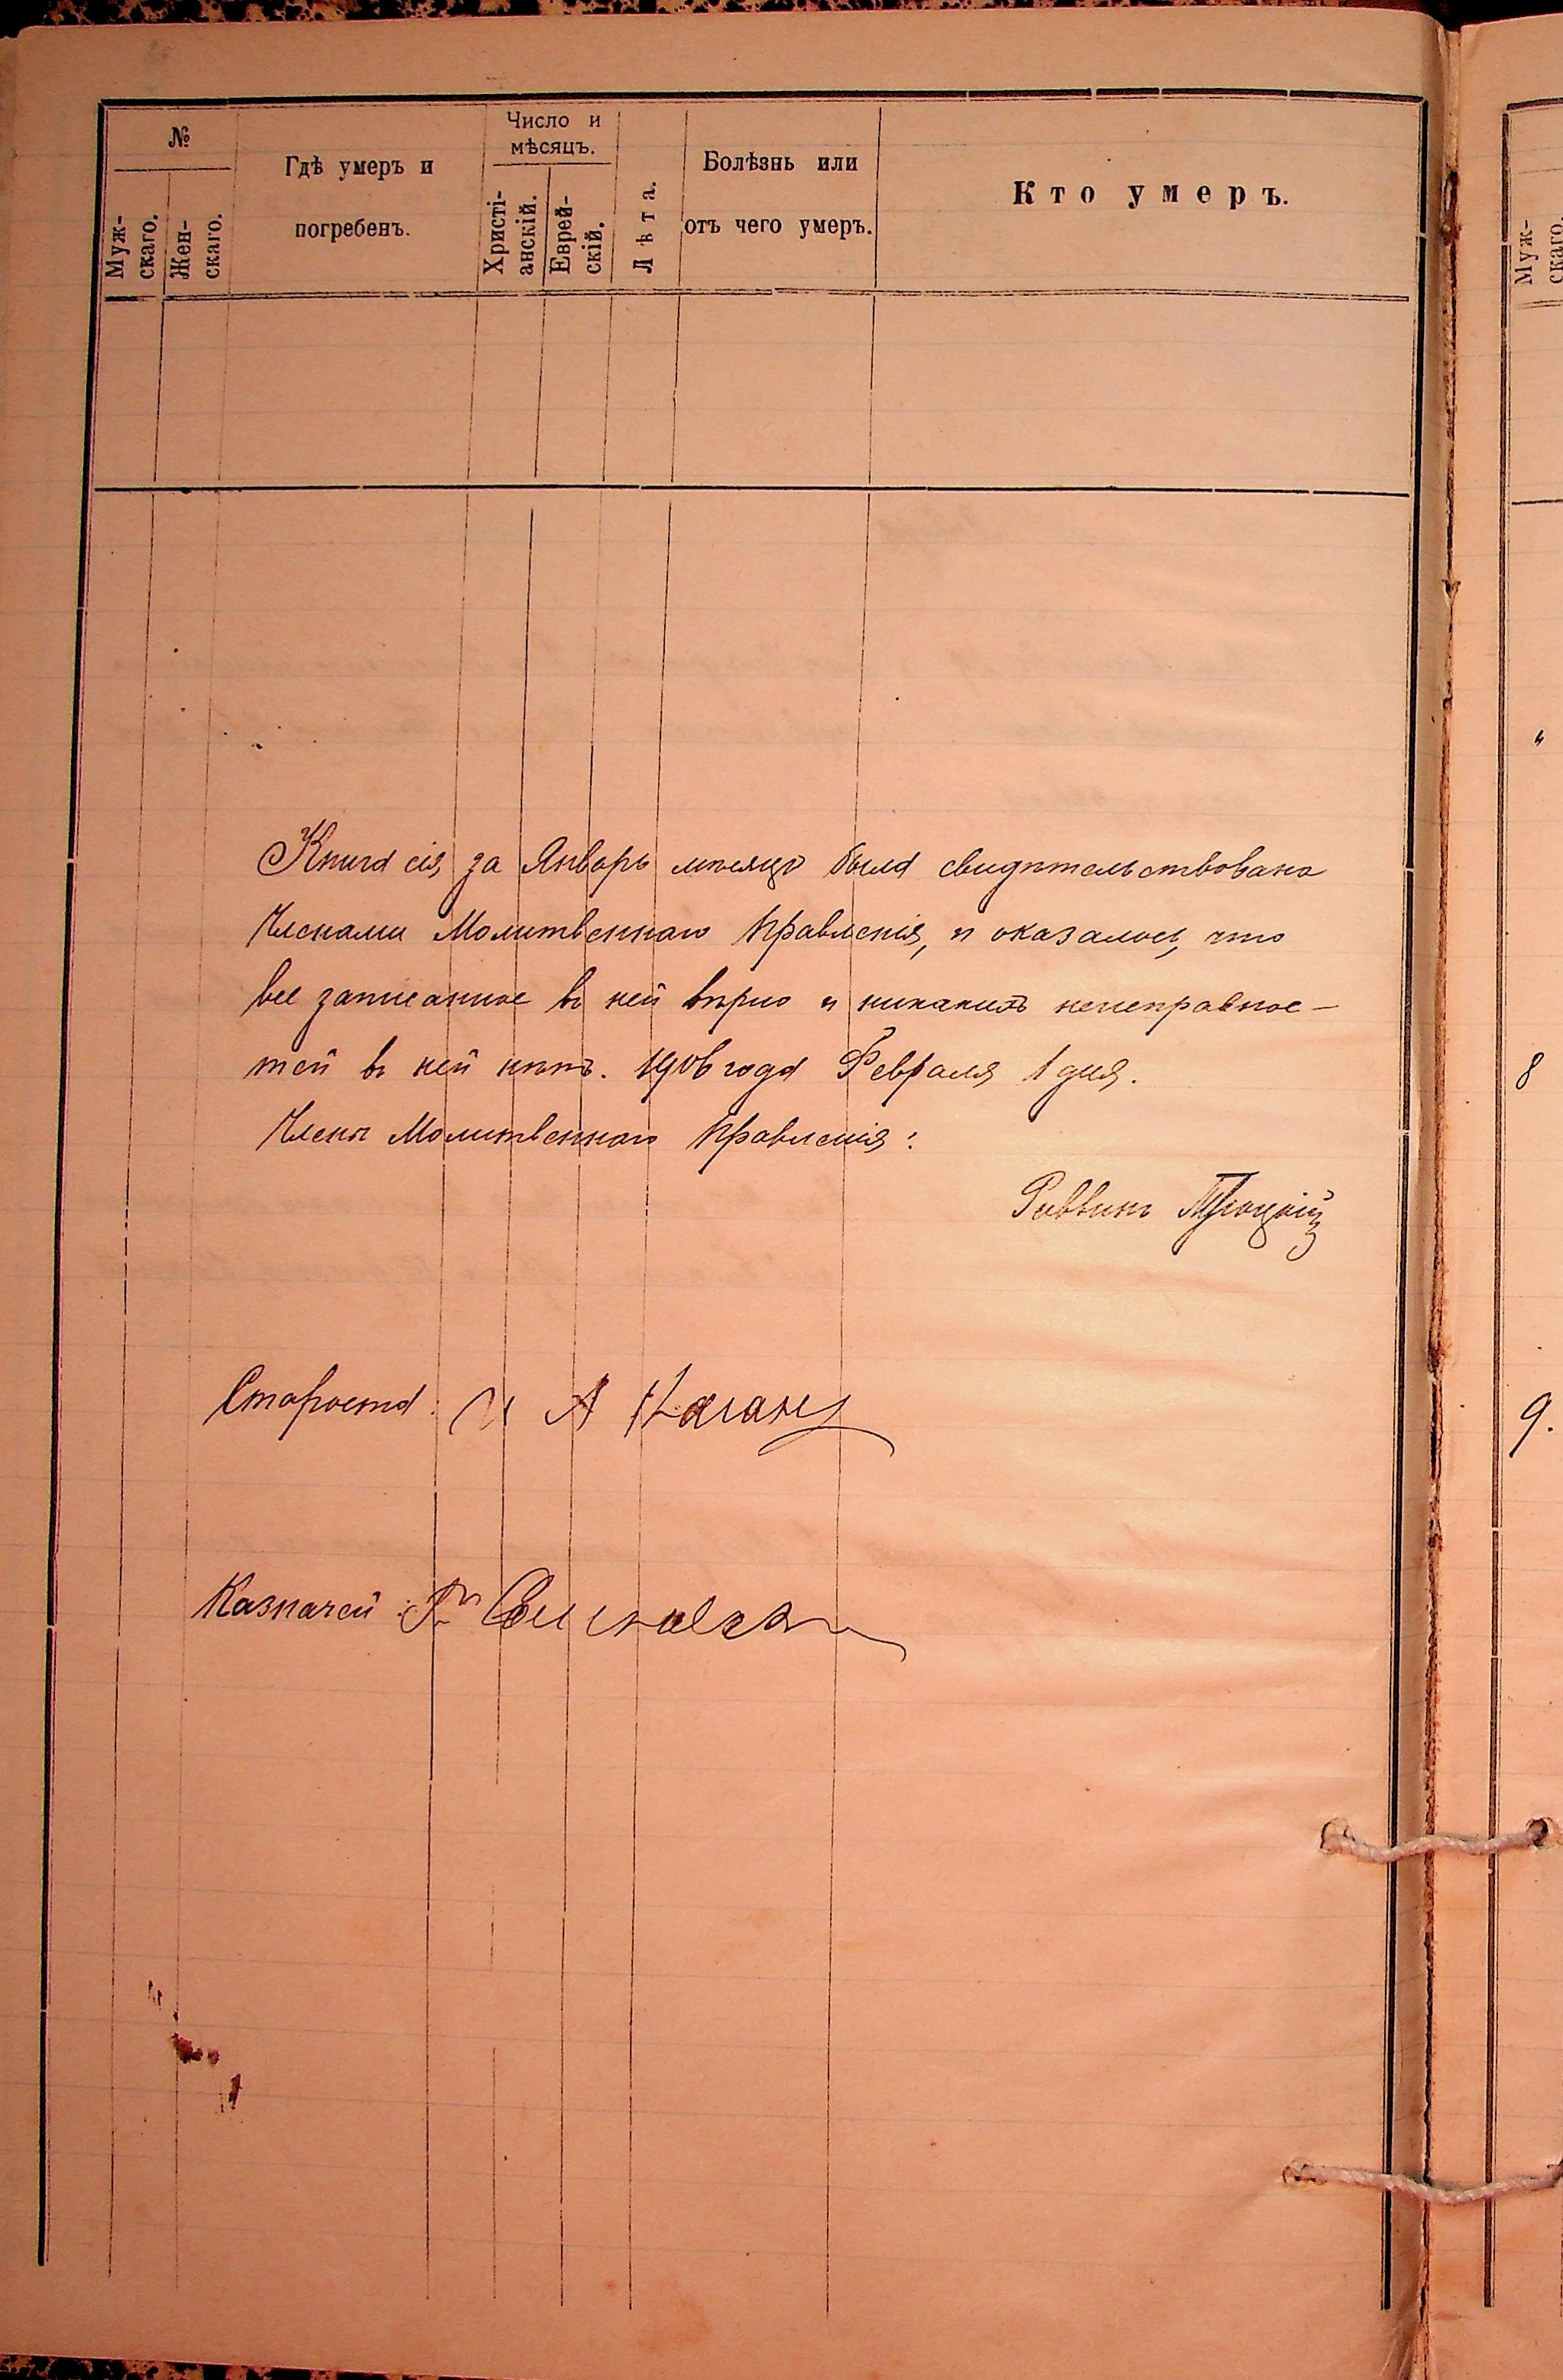 №
Муж-
скаго.
Жен-
скаго.
Гдѣ умеръ и
погребенъ.
Число и
мѣсяцъ.
Христі-
анскій.
Еврей-
скій.
Лѣта.
Болѣзнь или
отъ чего умеръ.
Кто умеръ.
Книга сія, за Январь мѣсяцъ была свидѣтельствована
Членами Молитвеннаго Правленія, и оказалось, что
все записанное въ ней вѣрно и никакихъ неисправнос-
тей въ ней нѣтъ. 1906 года Февраля 1 дня.
Члены Молитвеннаго Правленія:
Раввинъ Троцкій
Староста: И А Каганъ
Казначей:
Муж-
скаго.
"
8
9.